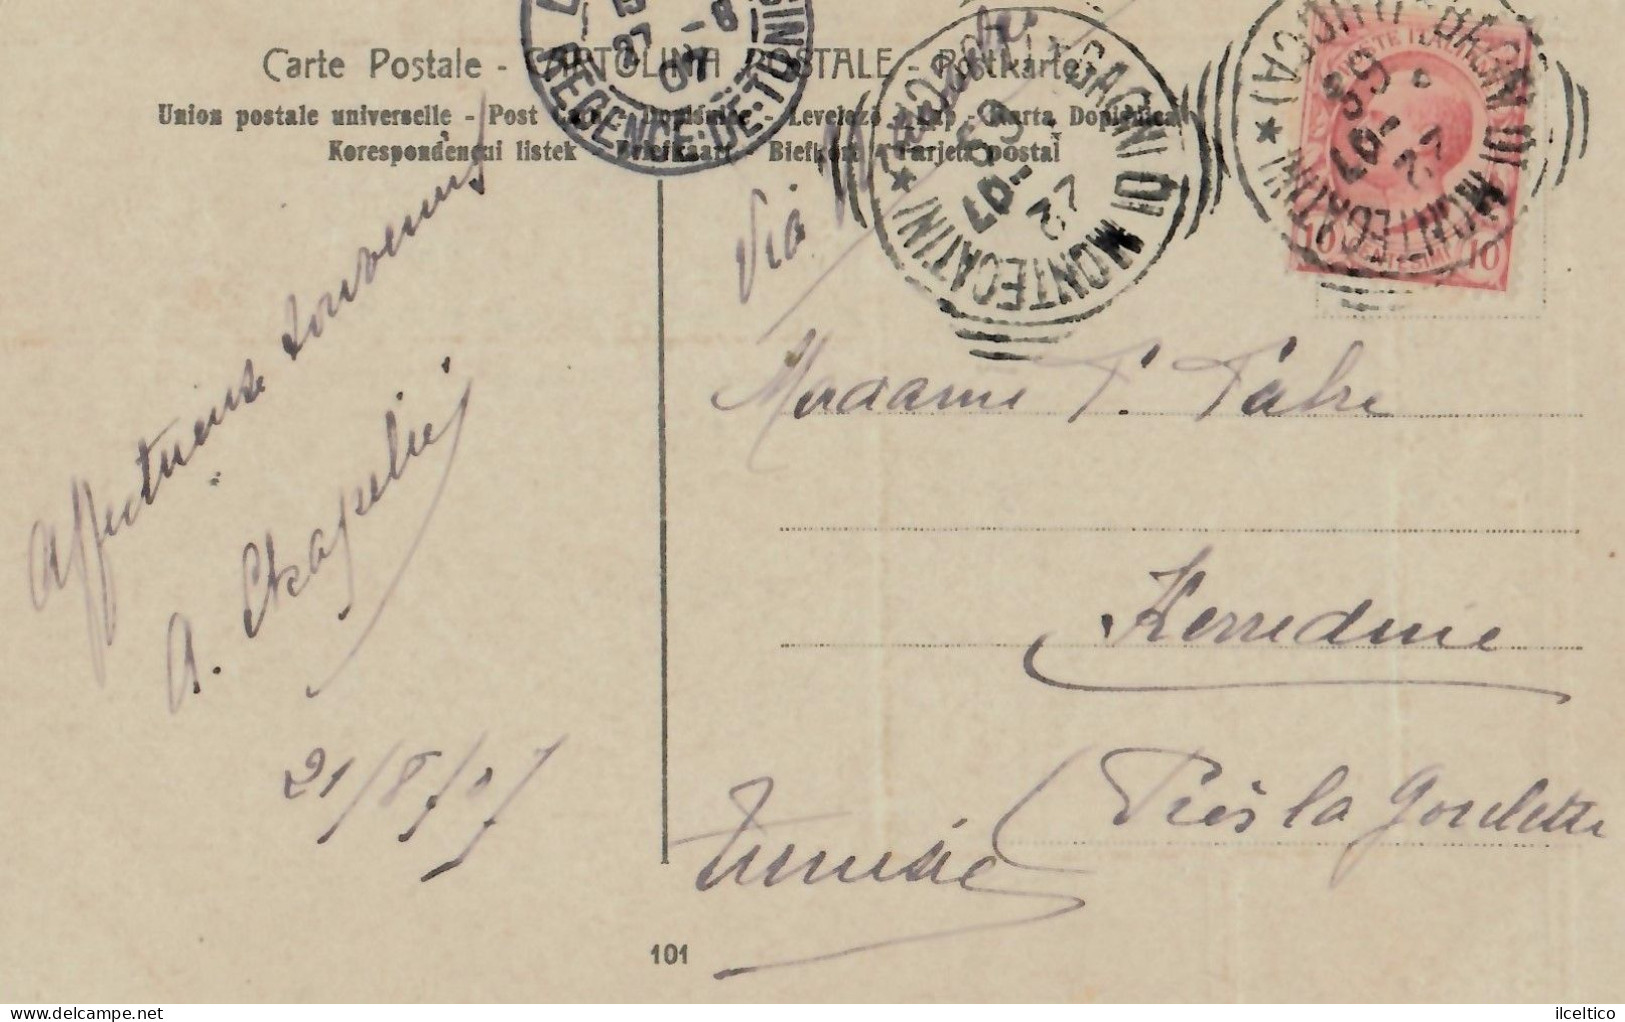 Carte Postale - CARTOLINA POSTALE - Postkarte
Union postale universelle - Post Card - Dopisnice - Levelező - Lap - Karta Dopisnica
Korespondenčni listek - Briefkaart - Biefkort - Tarjeta postal
REGENCE·DE·TUNIS
BAGNI DI MONTECATINI
22 8 07
BAGNI DI MONTECATINI
22 8 07
POSTE ITALIANE
10 CENTESIMI 10
Via
Affectueux souvenirs
A. Chapelié
21/8/07
Madame P. Fabre
Kerredine
(Près la Goulette
Tunisie
101
delcampe.net
ilceltico